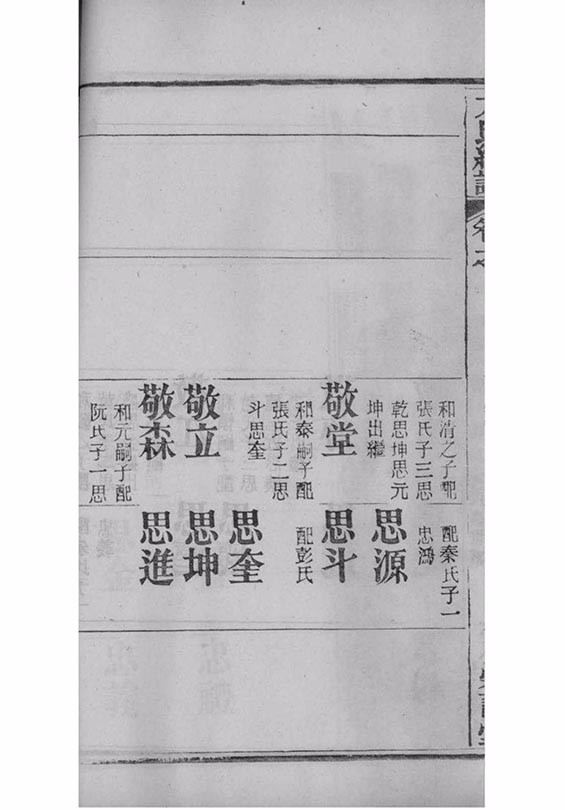 和清之子配
張氏子三思
乾思坤思元
坤出繼
敬堂
和泰嗣子配
張氏子二思
斗思奎
敬立
敬森
和元嗣子配
阮氏子一思
配秦氏子一
忠鴻
思源
思斗
配彭氏
思奎
思坤
思進